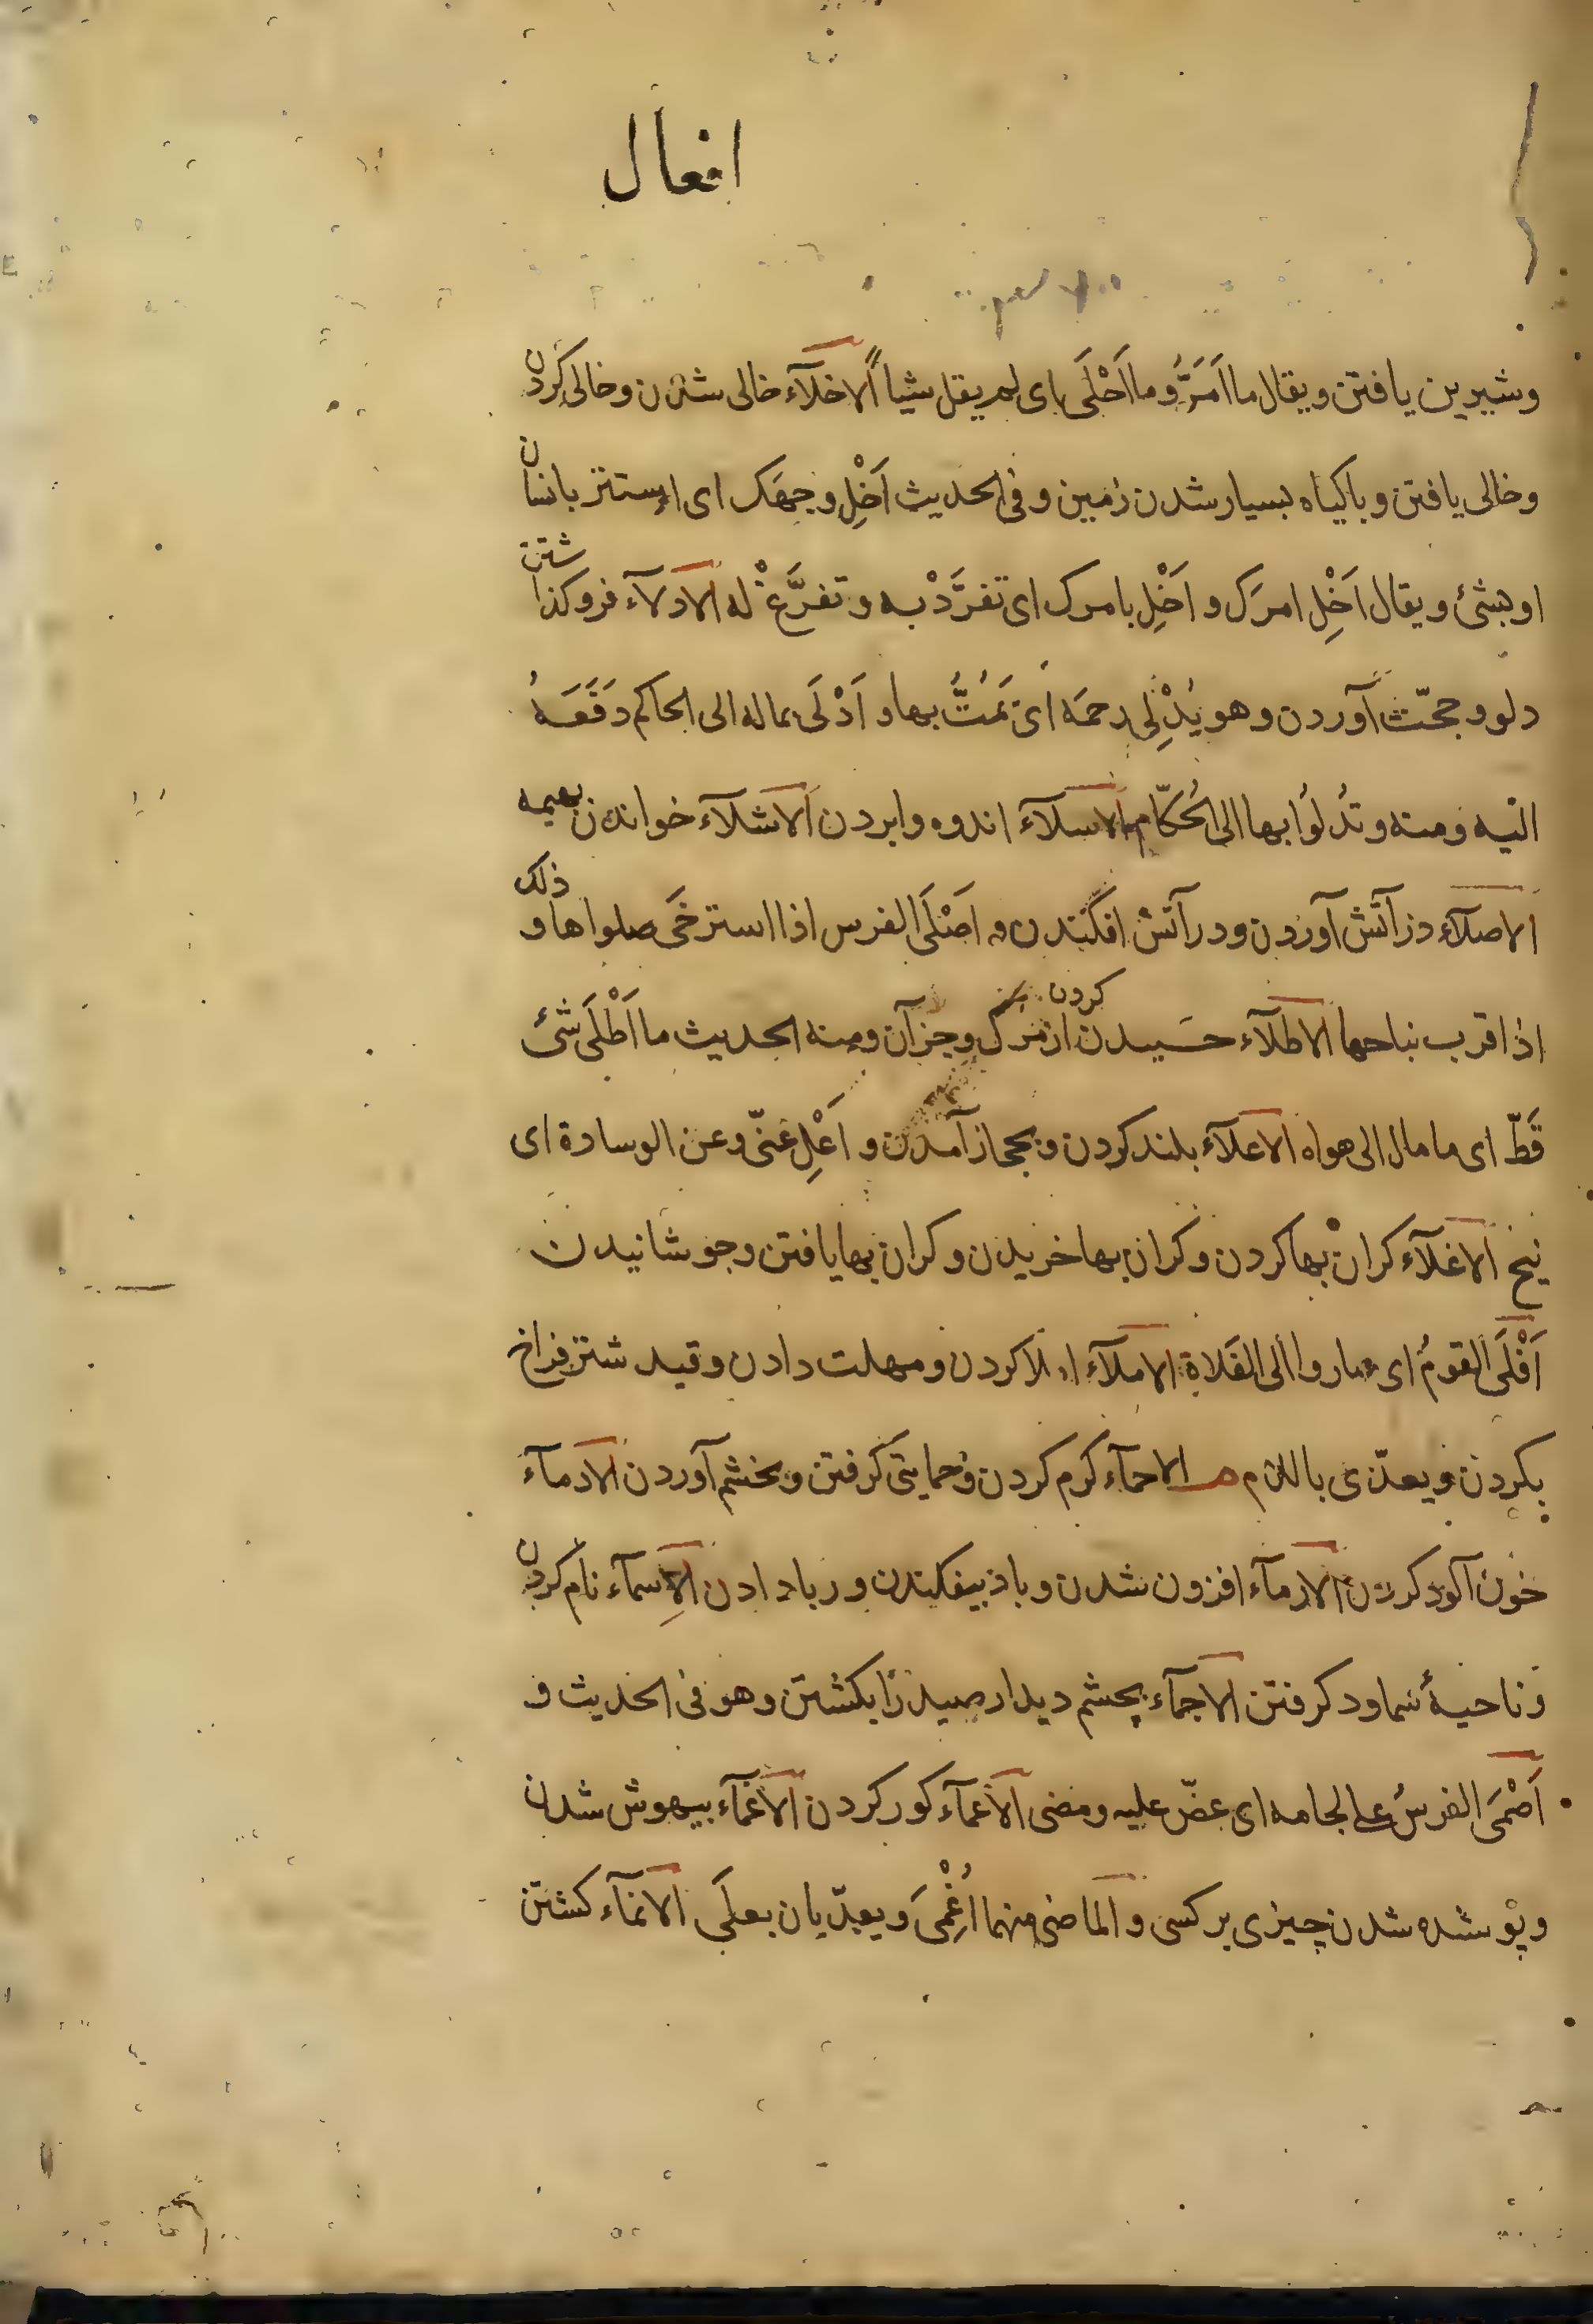 افعال
وشیرین یافتن ویقال ما اَمَرَّ وما اَحْلَی ای لم یقل شیاً الاخلآء خالی شدن وخالی کردن
وخالی یافتن وباکیاه بسیار شدن زمین وفی الحدیث اَخْلِ وجهک ای استتر بانسان
او بشئ ویقال اَخْلِ امرَک و اَخْلِ بامرک ای تفرَّدْ به وتفرَّغْ له الادلآء فروکذاشتن
دلو وحجّت آوردن وهو یُدْلِی برحمه ای یَمُتُّ بها و اَدْلَی بماله الی الحاکم دَفَعَهُ
الیه ومنه وتُدلوُا بها الی الحُکّام الاسلآء اندوه وابردن الاشلآء خواندن بهیمه
الاصلآء در آتش آوردن ودر آتش افکندن و اَصْلَی الفرس اذا استرخَی صلواها و ذلک
اذا اقرب نتاجها الاطلآء حسبیدن کردن از مرک وجز آن ومنه الحدیث ما اَطْلَی شئ
قَطّ ای ما مال الی هواه الاعلآء بلند کردن وبحجاز آمدن و اَعْلِ عنّی وعن الوسادة ای
نیح الاغلآء کران بها کردن وکران بها خریدن وکران بها یافتن وجوشانیدن
اَفْلَی القومُ ای صاروا الی الفَلاة الاملآء املا کردن ومهلت دادن وقید شتر فراخ
بکردن ویعدّی باللام الاحمآء کرم کردن وحمایتی کرفتن وبخشم آوردن الادمآء
خون آلود کردن الارمآء افزون شدن وباز بیفکندن و ربا دادن الاِسمآء نام کردن
وناحیهٔ سماوه کرفتن الاصمآء بچشم دیدار صید را بکشتن وهو فی الحدیث و
اَصْمَی الفرسُ علی لجامه ای عضّ علیه ومضی الاعمآء کور کردن الاغمآء بیهوش شدن
وپوشده شدن چیزی بر کسی والماضی منهما اُغْمِیَ ویعدّیان بعلَی الانمآء کشتن